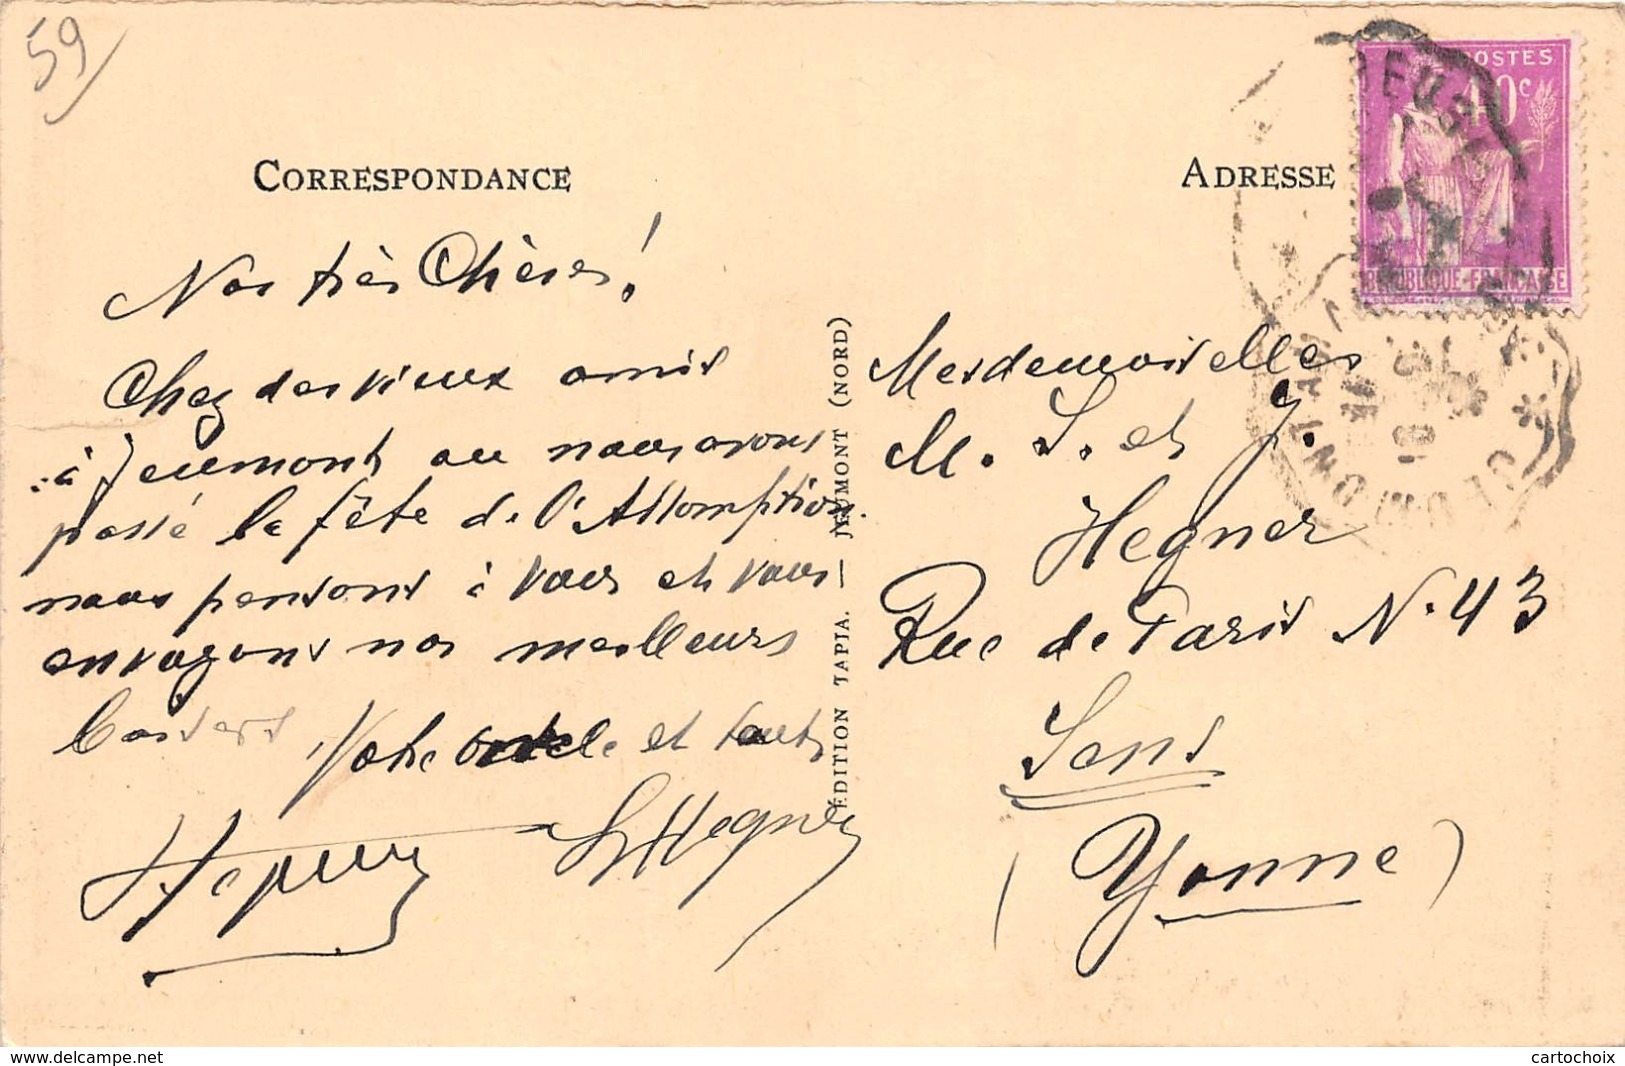 59
CORRESPONDANCE
Nos très Chères!
Chez des vieux amis
à Jeumont ou nous avons
passé la fête de l'Assomption.
nous pensons à vous et vous
envoyons nos meilleurs
baisers. Votre oncle et tante
Hegner
Hegner
EDITION TAPIA. — JEUMONT (NORD)
ADRESSE
POSTES
40c
REPUBLIQUE-FRANCAISE
Mesdemoiselles
M. S. et J.
Hegner
Rue de Paris N. 43
Sens
(Yonne)
www.delcampe.net
cartochoix